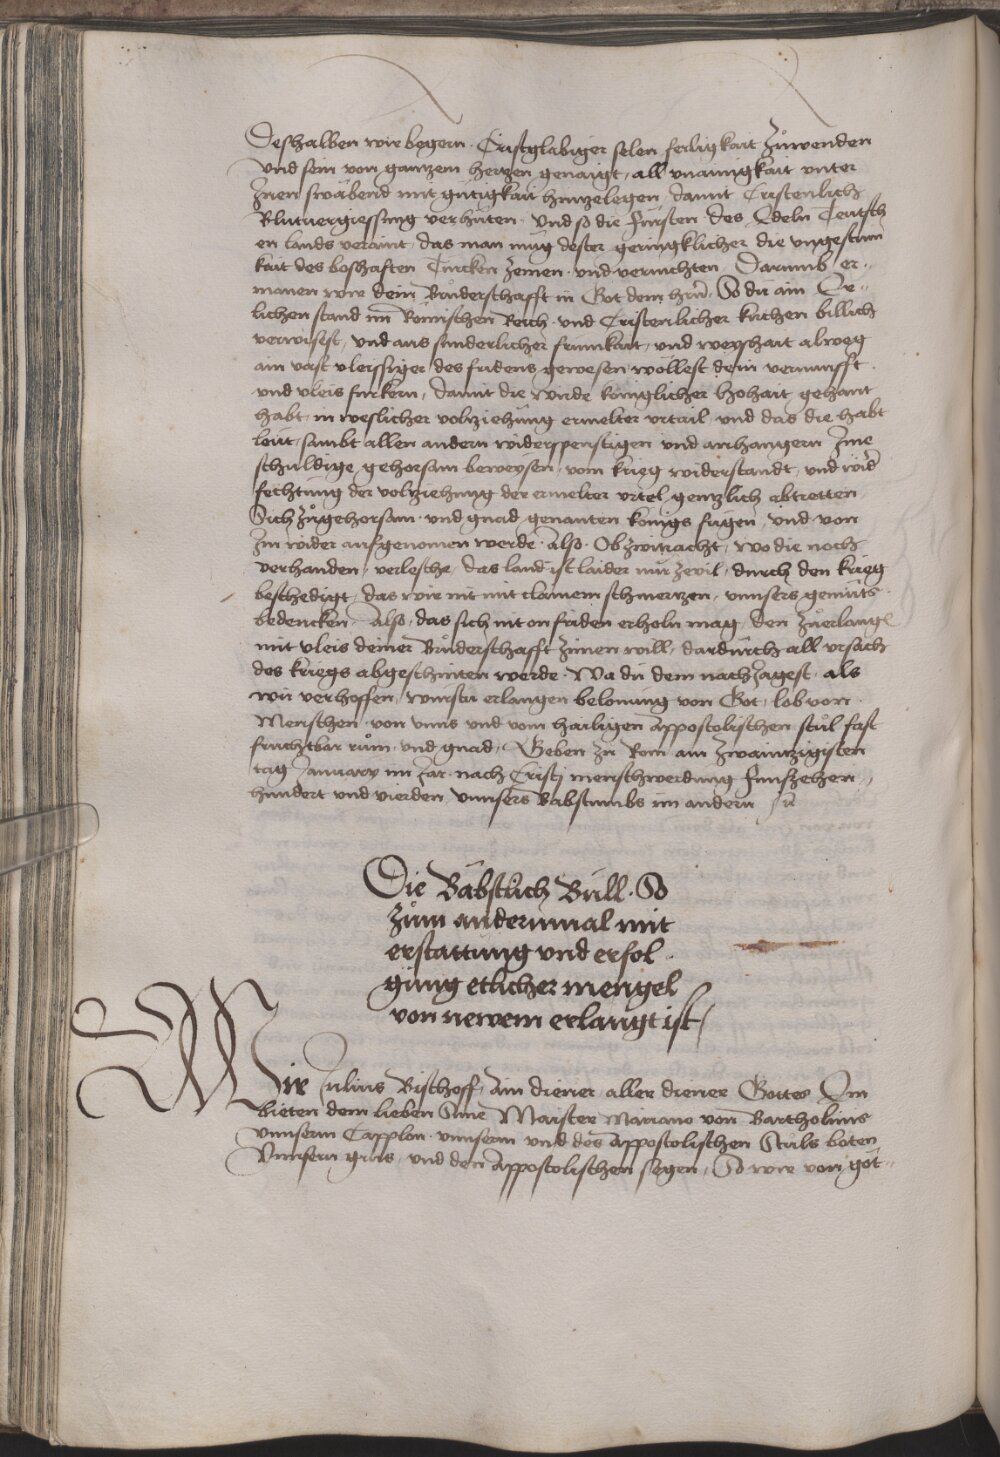 Deszhalben wir begern. Cristglabiger selen seiligkait zůwenden
vnd sein von gantzem hertzen genaigt, all vnainigkait vnter
Inen swäbend mit gütigkait hinzelegen, damit Cristenlich
Blutuergiessung verhüten. Vnd so die fürsten des Edeln Teutsch
en lands veraint, das man müg dester geringklicher die vngestüm
kait des boszhafften Türcken zemen. vnd vernichten. Darumb er-
manen wir dein Brůderschafft in Got dem hern. So du ain Er-
lichen stand im Römischen Reich. vnd Cristenlicher kirchen billich
verwisest, vnd aus sunderlicher frümkait, vnd weyszhait alweg
ain vast vleissiger des fridens gewesen wöllest dein vernunfft
vnd vleis fürkern, damit die wirde königlicher hohait gehant
habt, in weslicher volziehung ermelter vrtail. vnd das die habt
leüt, sambt allen andern widerspenstigen vnd anhangern Ime
schuldige, gehorsam beweysen, vom krieg widerstandt, vnd wid
fechtung der volziehung der ermelter vrtel gentzlich abtretten
Sich zůgehorsam. vnd gnad, genanten königs fügen, vnd von
Im wider aufgenomen werde. Also. Ob zwitracht, wo die noch
verhanden, verlesche, das land ist laider nür zevil, durch den krieg
beschedigt, das wir nit mit clainem schmertzen, vnnsers gemüts
bedencken. Also, das sich nit on friden erholn mag, den zuerlang
mit vleis deiner Brůderschafft zimen will, dardurch all vrsach
des kriegs abgeschniten werde. Wa du dem nach Jagest, als
wir verhoffen, wirstu erlangen belonung von Got, lob von
Menschen. von vnns vnd vom hailigen Appostolischen stůl fast
fruchtbar rům, vnd gnad, Geben zu Rom am zwaintzigisten
tag January im Jar. nach Cristj menschwerdung Funfzehen
hundert vnd vierden, vnnsers Babstumbs im andern Jar

Die Bäbstlich Bull. So
zům andernmal mit
erstattung vnd erfol
gung etlicher mengel
von newem erlangt ist

Wir Julius Bischoff, Ain diener aller diener Gottes Em
bieten dem lieben Sune Maister Mariano von Bartholinis
vnnserm Capplon. vnnserm vnd des Appostolischen Stůls boten
Vnnsern grus, vnd den Appostolischen segen, So wir von göt-